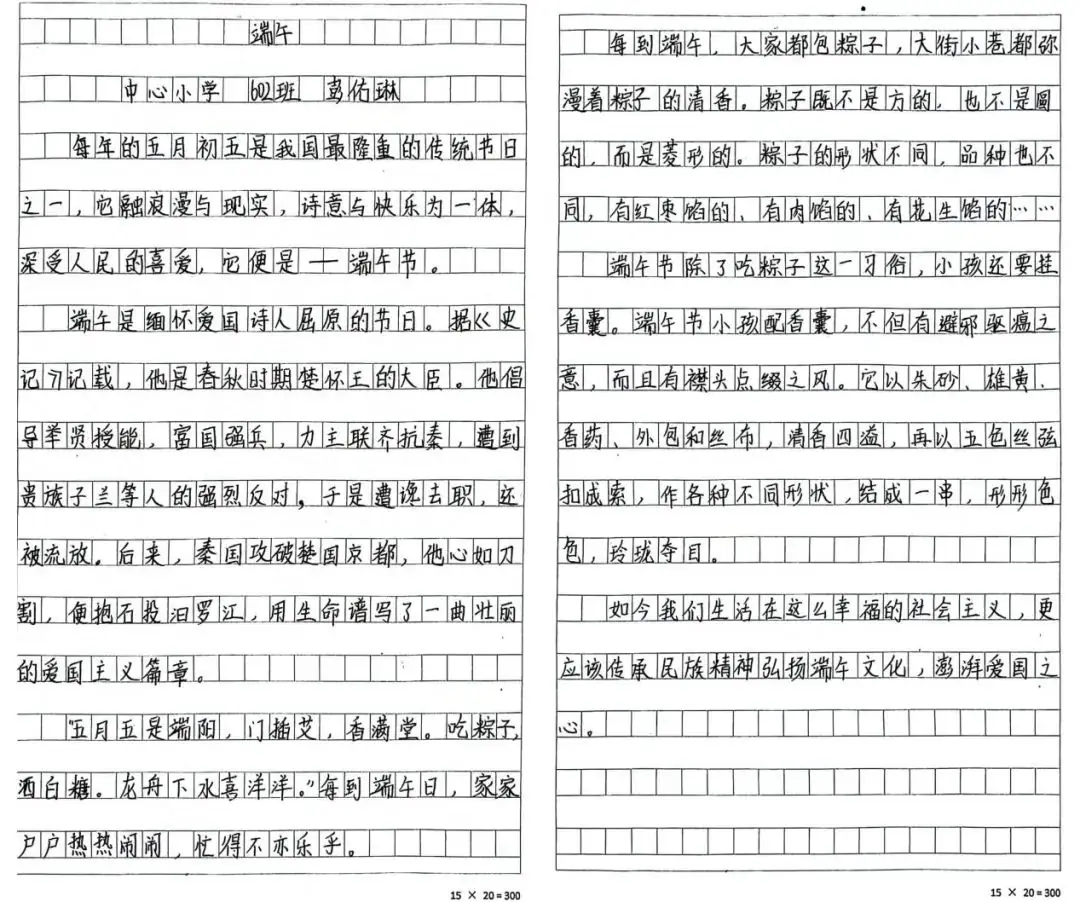 端午
中心小学 602班 彭佑琳
每年的五月初五是我国最隆重的传统节日
之一，它融浪漫与现实，诗意与快乐为一体，
深受人民的喜爱，它便是——端午节。
端午是缅怀爱国诗人屈原的节日。据《史
记》记载，他是春秋时期楚怀王的大臣。他倡
导举贤授能，富国强兵，力主联齐抗秦，遭到
贵族子兰等人的强烈反对，于是遭谗去职，还
被流放。后来，秦国攻破楚国京都，他心如刀
割，便抱石投汨罗江，用生命谱写了一曲壮丽
的爱国主义篇章。
“五月五是端阳，门插艾，香满堂。吃粽子，
洒白糖。龙舟下水喜洋洋。”每到端午日，家家
户户热热闹闹，忙得不亦乐乎。
15 × 20=300
每到端午，大家都包粽子，大街小巷都弥
漫着粽子的清香。粽子既不是方的，也不是圆
的，而是菱形的。粽子的形状不同，品种也不
同，有红枣馅的、有肉馅的、有花生馅的……
端午节除了吃粽子这一习俗，小孩还要挂
香囊。端午节小孩配香囊，不但有避邪驱瘟之
意，而且有襟头点缀之风。它以朱砂、雄黄、
香药、外包和丝布，清香四溢，再以五色丝弦
扣成索，作各种不同形状，结成一串，形形色
色，玲珑夺目。
如今我们生活在这么幸福的社会主义，更
应该传承民族精神弘扬端午文化，澎湃爱国之
心。
15 × 20=300